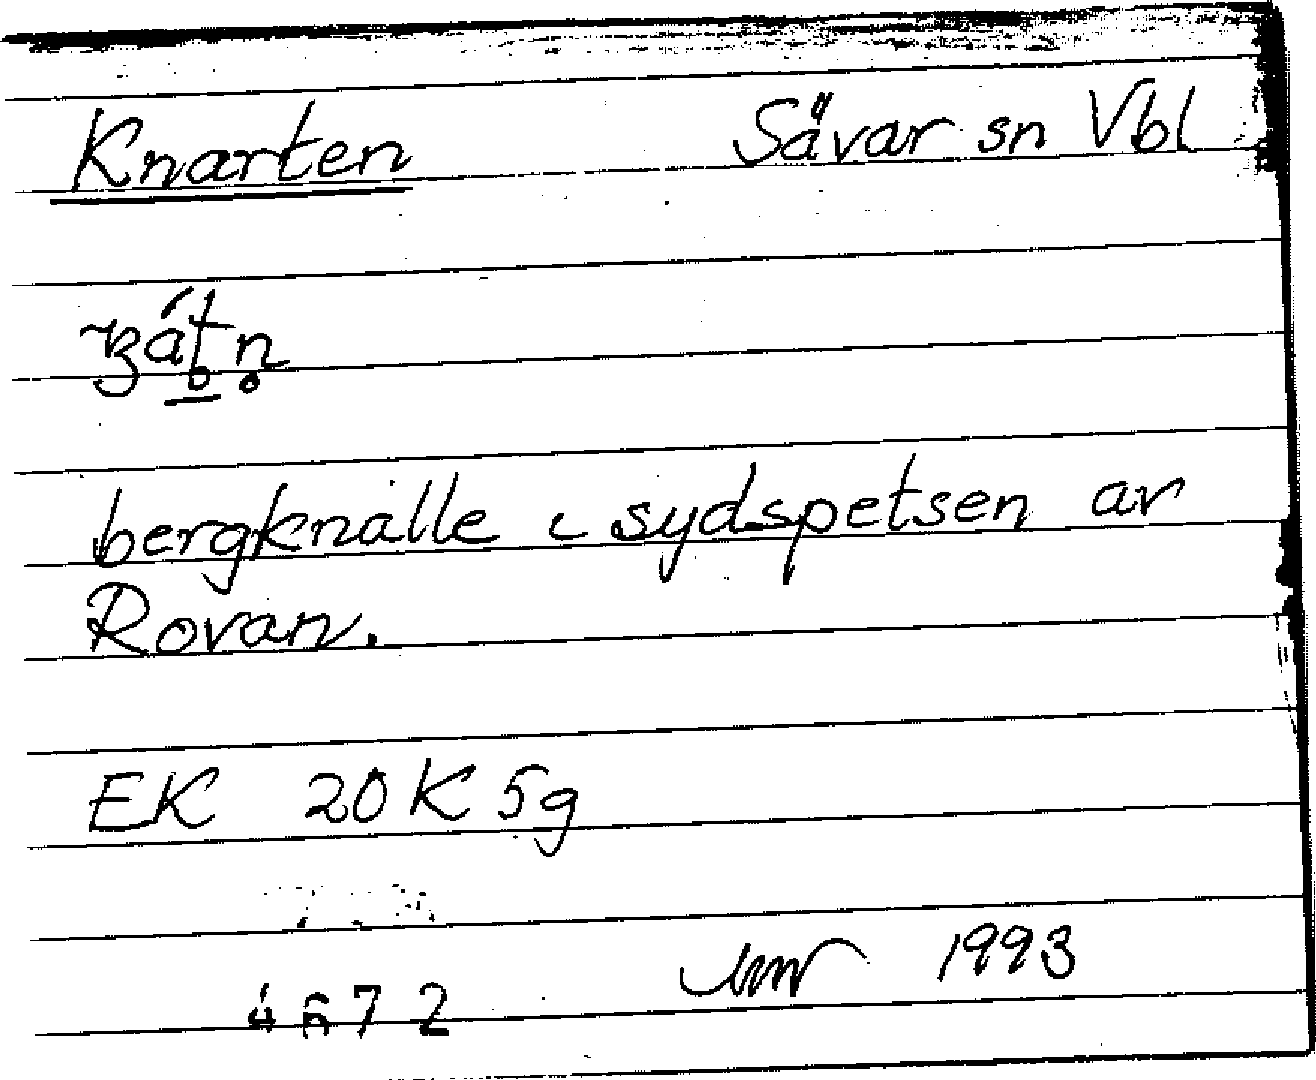 Knarten Sävar sn Vbl
bergknalle i sydspetsen av
Rovan.
EK 20K 5g
1993
4672